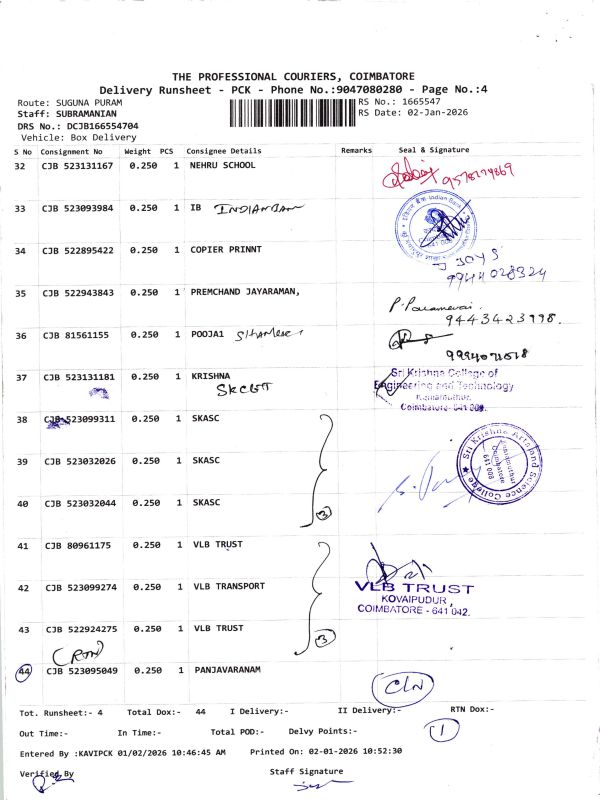 THE PROFESSIONAL COURIERS, COIMBATORE
Delivery Runsheet - PCK - Phone No.:9047080280 - Page No.:4
Route: SUGUNA PURAM RS No.: 1665547
Staff: SUBRAMANIAN RS Date: 02-Jan-2026
DRS No.: DCJB166554704
Vehicle: Box Delivery
S No Consignment No Weight PCS Consignee Details Remarks Seal & Signature
32 CJB 523131167 0.250 1 NEHRU SCHOOL
33 CJB 523093984 0.250 1 IB INDIAN BANK
Indian Bank
34 CJB 522895422 0.250 1 COPIER PRINNT
JOYS
9944028324
35 CJB 522943843 0.250 1 PREMCHAND JAYARAMAN,
9443423998.
36 CJB 81561155 0.250 1 POOJA1
37 CJB 523131181 0.250 1 KRISHNA
SKCET
Sri Krishna College of
Engineering and Technology
Kuniamuthur,
Coimbatore- 641 008.
38 CJB 523099311 0.250 1 SKASC
39 CJB 523032026 0.250 1 SKASC
Sri Krishna Arts and Science College
Kuniamuthur
Coimbatore
641 008
40 CJB 523032044 0.250 1 SKASC
3
41 CJB 80961175 0.250 1 VLB TRUST
42 CJB 523099274 0.250 1 VLB TRANSPORT
VLB TRUST
KOVAIPUDUR,
COIMBATORE - 641 042.
43 CJB 522924275 0.250 1 VLB TRUST
3
(RTN)
44 CJB 523095049 0.250 1 PANJAVARANAM
C/N
Tot. Runsheet:- 4 Total Dox:- 44 I Delivery:- II Delivery:- RTN Dox:-
1
Out Time:- In Time:- Total POD:- Delvy Points:-
Entered By :KAVIPCK 01/02/2026 10:46:45 AM Printed On: 02-01-2026 10:52:30
Verified By Staff Signature